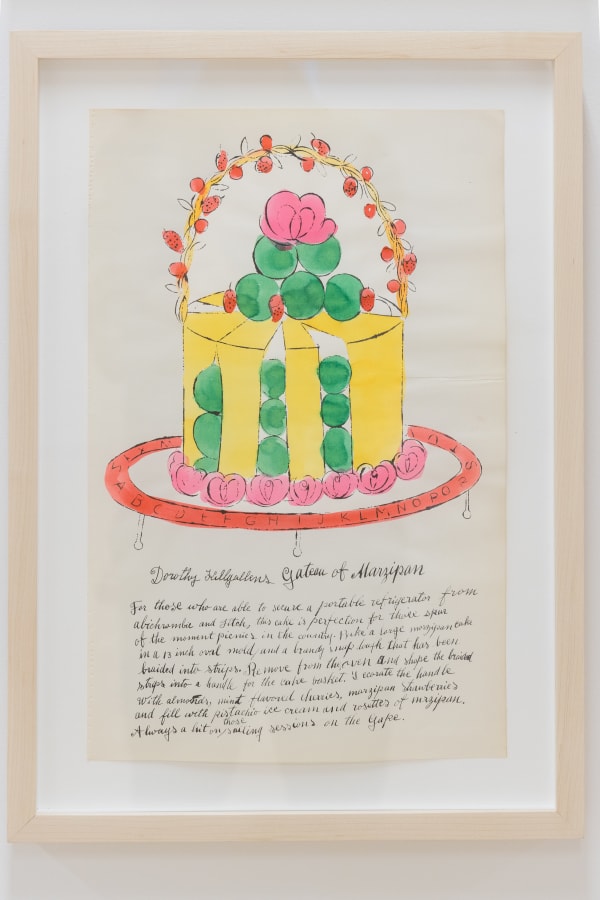 A B C D E F G H I J K L M N O P Q R S T U
Dorothy Killgallens Gateau of Marzipan
For those who are able to secure a portable refrigerator from
abichrombie and Fitch, this cake is perfection for those spur
of the moment picnics in the country. Bake a large marzipan cake
in a 13 inch oval mold, and a brandy snap loaph that has been
braided into strips. Remove from the oven and shape the braided
strips into a handle for the cake basket. Decorate the handle
with almonds, mint flavored cherries, marzipan strawberries
and fill with pistachio ice cream and rosettes of mrzipan.
Always a hit on those sailing sessions on the Yape.